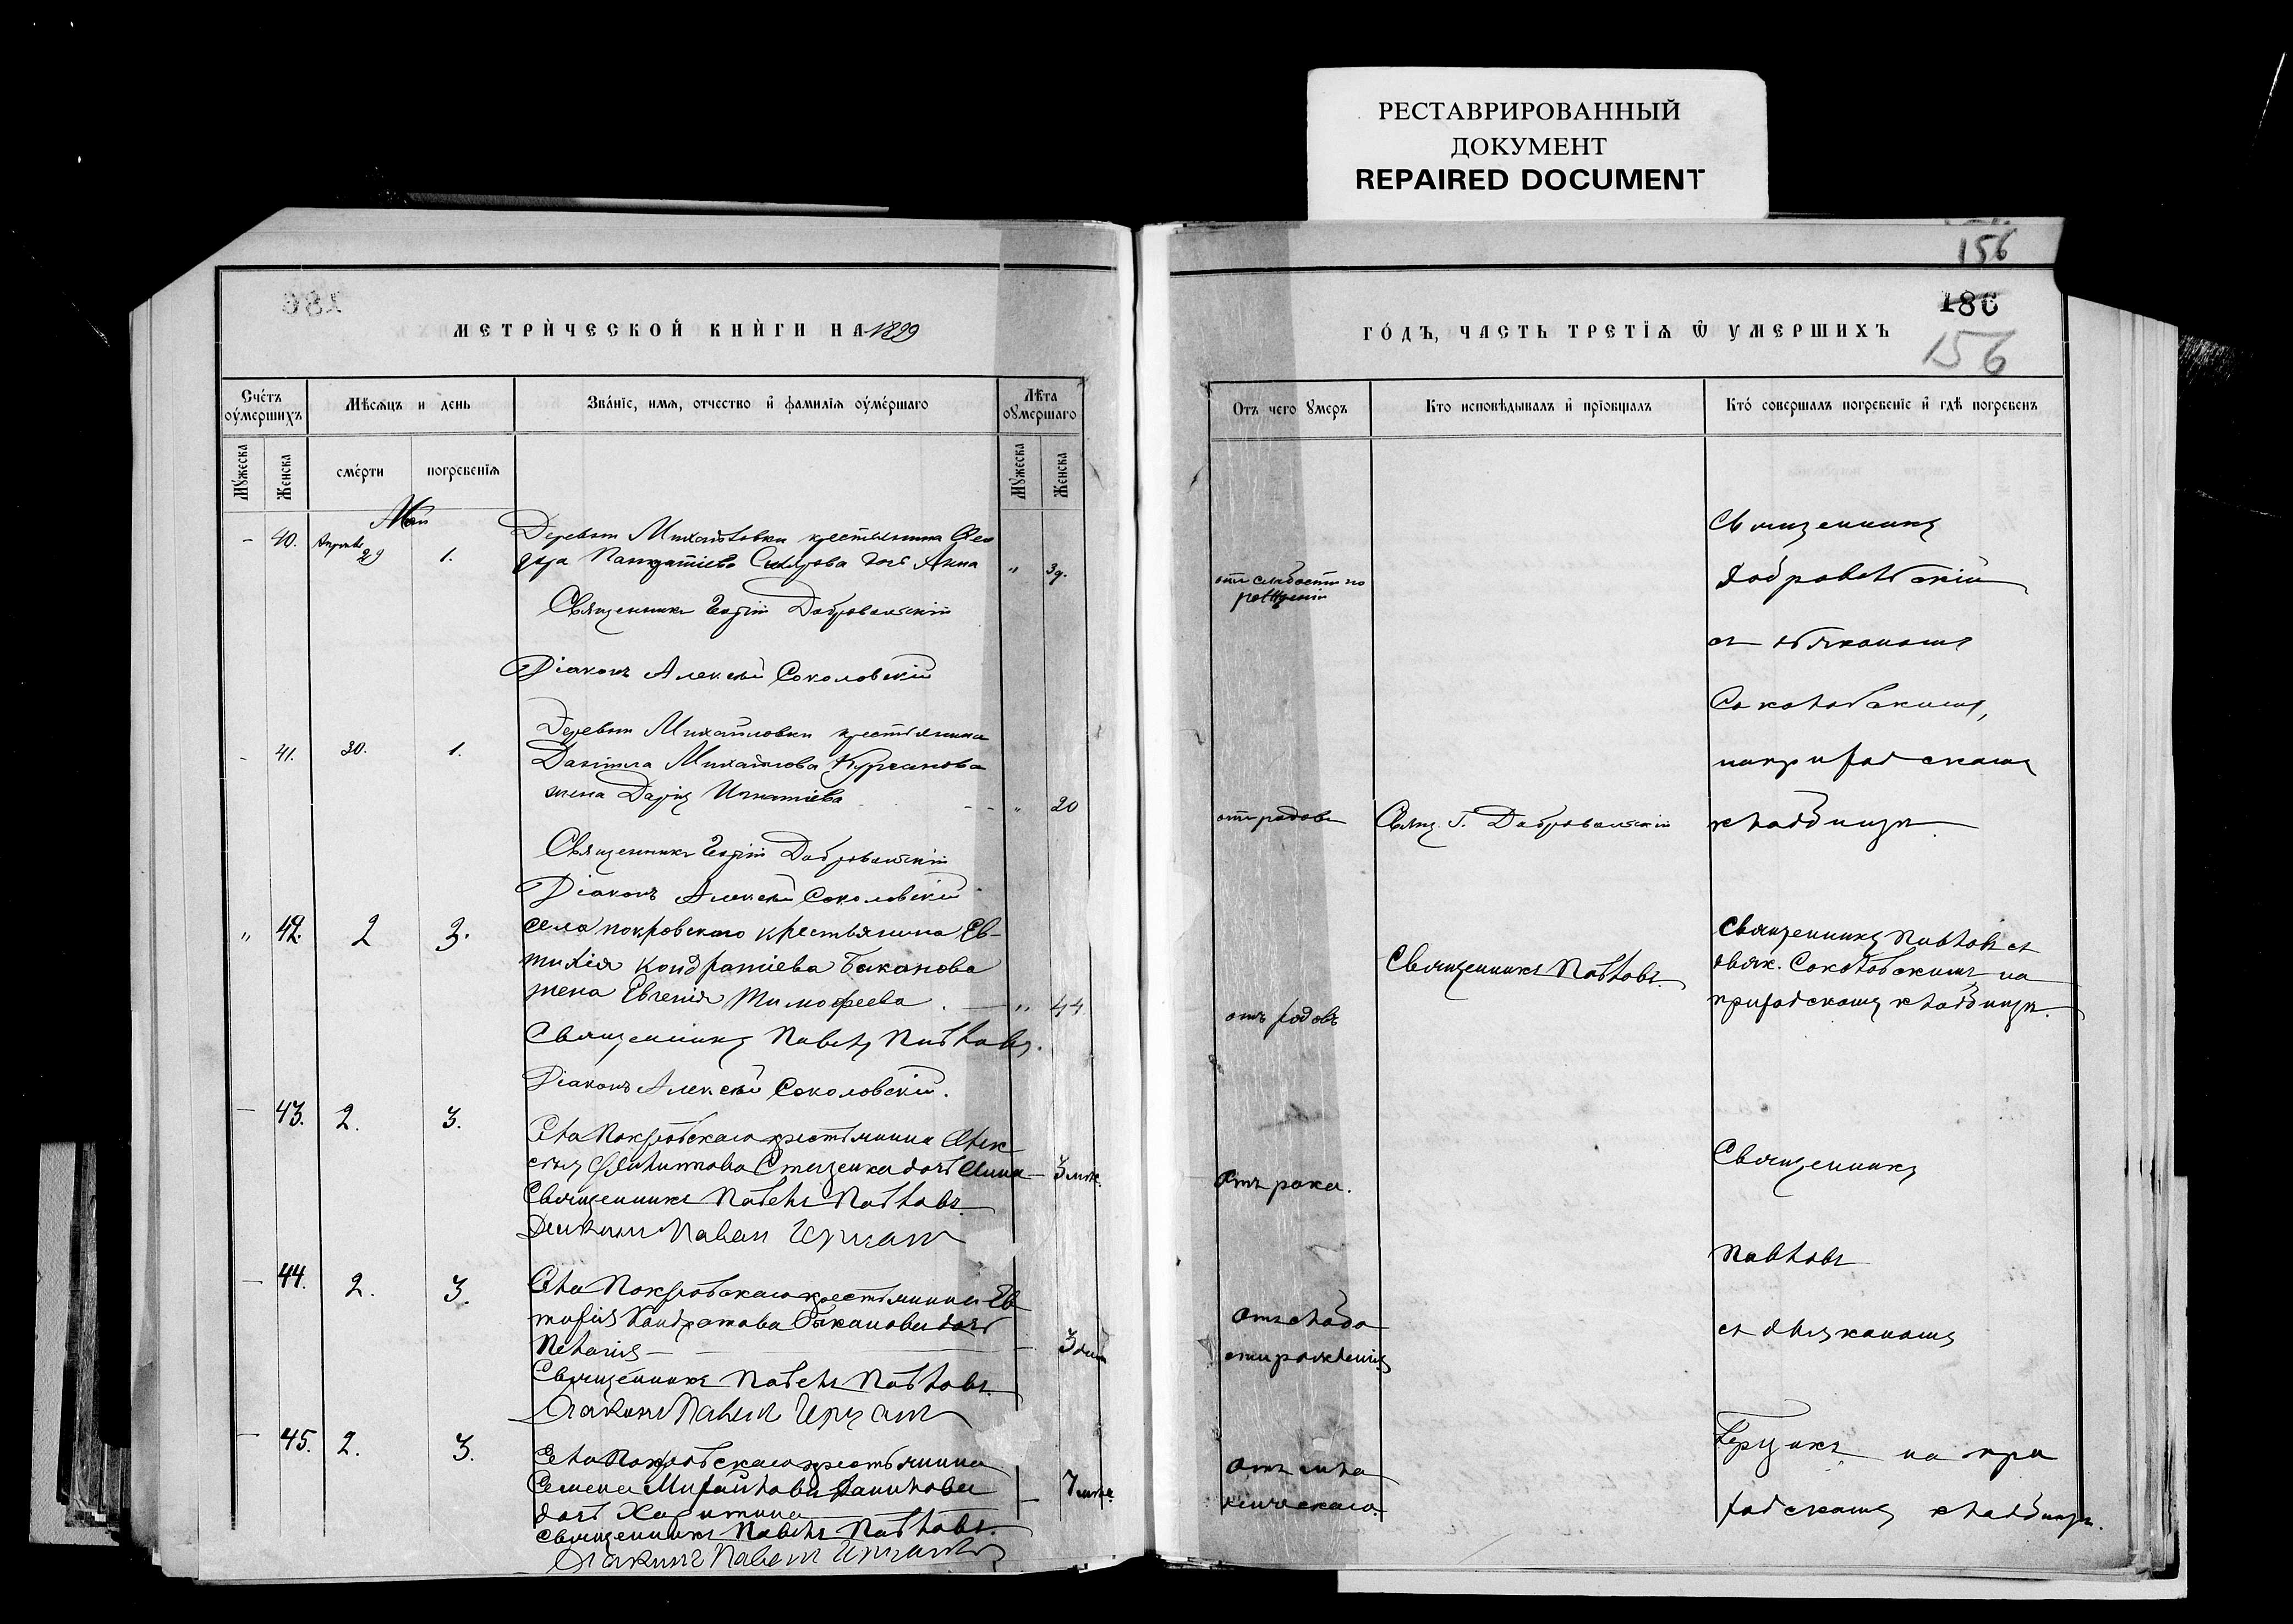 РЕСТАВРИРОВАННЫЙ
ДОКУМЕНТ
REPAIRED DOCUMENT
156
186
МЕТРИ́ЧЕСКОЙ КНИ́ГИ НА 1899
Сче́тъ оу҆мершихъ
Мѣсяцъ и день
Зва́нїе, имѧ, отчество и҆ фамилїѧ оу҆ме́ршагѡ
Лѣта оу҆мершаго
Мꙋжеска
Женска
сме́рти
погребенїѧ
Мꙋжеска
Женска
Май
- 40. Апрѣль 29 1.
Деревни Михайловки крестьянина Ѳео
дора Панкратіева дочь Анна " 3 д.
Священникъ Георгій Добровольскій
Діаконъ Алексѣй Соколовскій
- 41. 30. 1.
Деревни Михайловки крестьянина
Даніила Михайлова Курганова
жена Дарія Игнатіева - - " 20
Священникъ Георгій Добровольскій
Діаконъ Алексѣй Соколовскій
" 42. 2 3.
села покровскаго крестьянина Ев-
тихія Кондратіева Баканова
жена Евгенія Тимофеева . — " 44
Священникъ Павелъ Павловъ.
Діаконъ Алексѣй Соколовскій.
— 43. 2. 3.
Села Покровскаго крестьянина Алек
сѣя Филиппова Стаценка дочь Анна — 3 мѣс.
Священникъ Павелъ Павловъ.
Діаконъ Павелъ
— 44. 2. 3.
Села Покровскаго крестьянина Ев
тихія Кондратова Баканова дочь
Пелагія — 3 дня
Священникъ Павелъ Павловъ.
Діаконъ Павелъ
— 45. 2. 3.
Села Покровскаго крестьянина
Семена Михайлова Данилова — 7 мѣс.
дочь Харитина
Священникъ Павелъ Павловъ.
Діаконъ Павелъ
156
186
156
ГО́ДЪ, ЧАСТЬ ТРЕТЇѦ Ѿ УМЕРШИХЪ
Отъ чего ꙋмеръ
Кто исповѣдывалъ и҆ прїобщалъ
Кто́ совершалъ погребенїе и҆ гдѣ погребенъ
отъ слабости по
рожденіи
Священникъ
Добровольскій
съ діакономъ
Соколовскимъ,
на приходскомъ
кладбищѣ.
отъ родовъ
Свящ. Г. Добровольскій
отъ родовъ
Священникъ Павловъ.
Священникъ Павловъ съ
діак. Соколовскимъ на
приходскомъ кладбищѣ.
Отъ рака.
Священникъ
Павловъ
Отъ слабо
сти рожденія
съ діакономъ
Отъ мла
денческаго.
на при
ходскомъ кладбищѣ.